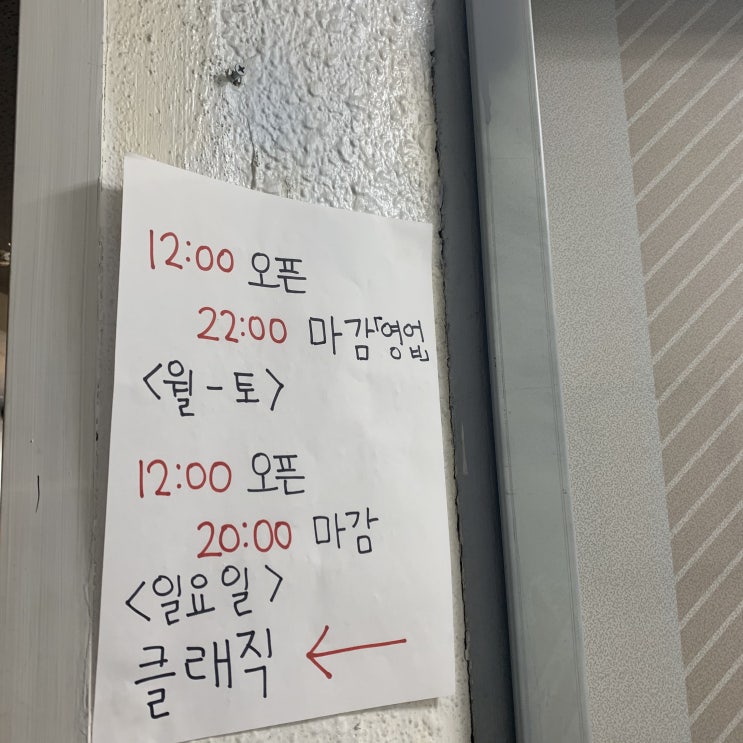 12:00 오픈
22:00 마감「영업」
<월-토>
12:00 오픈
20:00 마감
<일요일>
클래직 ←